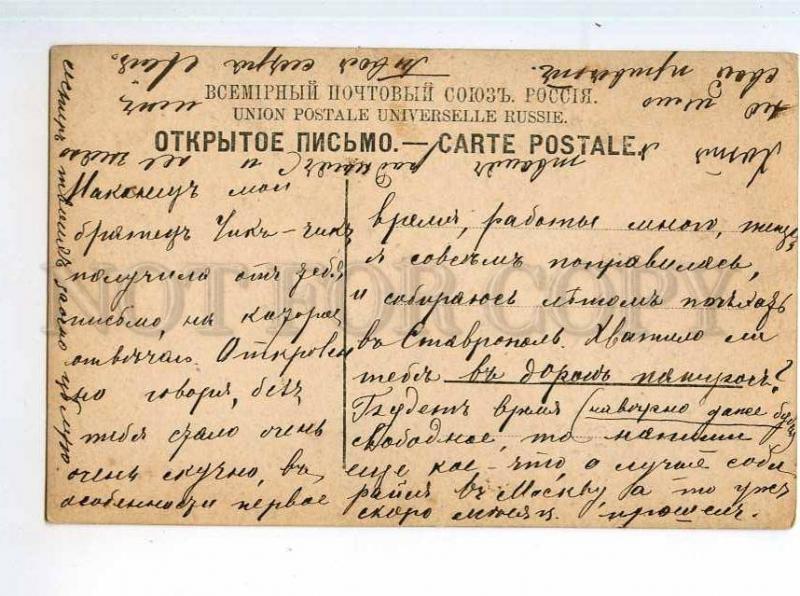 ВСЕМІРНЫЙ ПОЧТОВЫЙ СОЮЗЪ. РОССІЯ.
UNION POSTALE UNIVERSELLE RUSSIE.
ОТКРЫТОЕ ПИСЬМО.—CARTE POSTALE.
Наконецъ мой
братецъ Чикъ-чикъ
получила отъ тебя
письмо, на которое
отвѣчаю. Откровен
но говоря, безъ
тебя стало очень
очень скучно, въ
особенности первое
время, работы много,
я совсѣмъ поправилась,
и собираюсь лѣтомъ поѣхать
въ Ставрополь. Хватило ли
тебѣ въ дорогѣ папиросъ?
Будетъ время (навѣрно даже
свободное, то напиши
еще кое-что, а лучше соби
райся въ Москву, а то ужъ
скоро мѣсяц. прошелъ.
Твоя сестра
свой
NOT FOR COPY